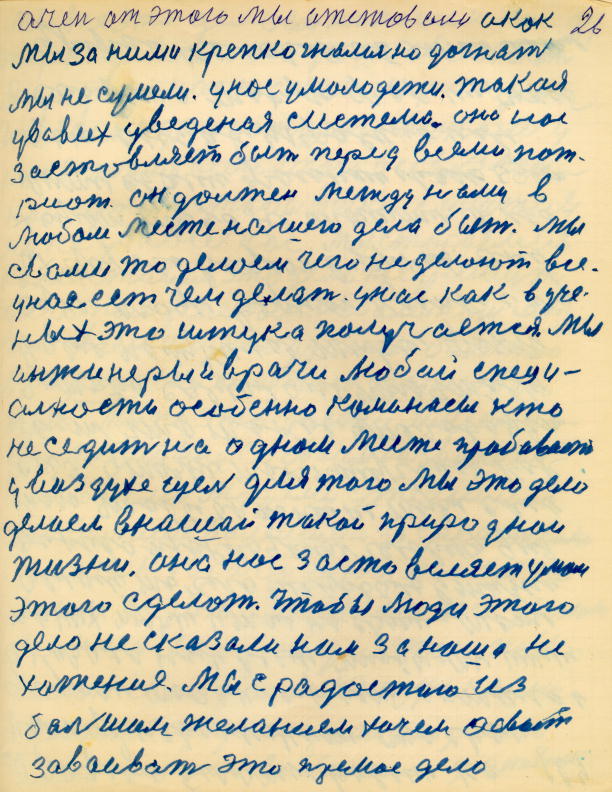 очен от этого мы отстовали а как 26
мы за ними крепко гналися но догнат
мы не сумели. у нас у молодежи. такая
у всех уведеная система. она нас
заставляет быт перед всеми пат-
риот. он должен между нами в
любом месте нашего дела быт. мы
с вами то делаем чего не делают все.
у нас ест чем делат. у нас как в уче-
ных это штука получается. мы
инжинеры и врачи любой специ-
алности особенно команасы кто
не седит на одном месте пробават
у воздухе цел для того мы это дело
делаем в нашай такой природной
жизни, она нас заставляет умом
этого сделат. Чтобы люди этого
дело не сказали нам за наша не
хатение. мы с радостою из
балшим желанием хочем
заваеват это прямое дело